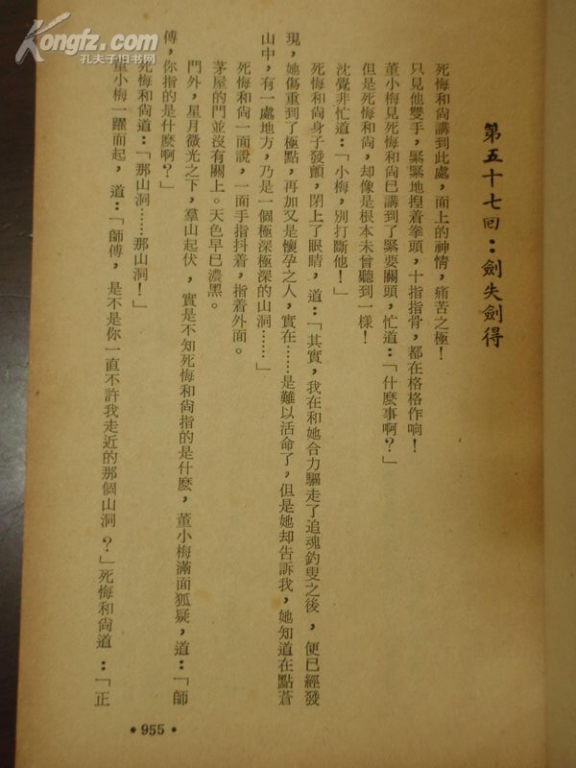 Kongfz.com
孔夫子旧书网
第五十七回：劍失劍得
死悔和尙講到此處，面上的神情，痛苦之極！
只見他雙手，緊緊地揑着拳頭，十指指骨，都在格格作响！
董小梅見死悔和尙已講到了緊要關頭，忙道：「什麽事啊？」
但是死悔和尙，却像是根本未曾聽到一樣！
沈覺非忙道：「小梅，別打斷他！」
死悔和尙身子發顫，閉上了眼睛，道：「其實，我在和她合力驅走了追魂釣叟之後，便已經發
現，她傷重到了極點，再加又是懷孕之人，實在……是難以活命了，但是她却告訴我，她知道在點蒼
山中，有一處地方，乃是一個極深極深的山洞……」
死悔和尙一面說，一面手指抖着，指着外面。
茅屋的門並沒有關上。天色早已濃黑。
門外，星月微光之下，羣山起伏，實是不知死悔和尙指的是什麽，董小梅滿面狐疑，道：「師
傅，你指的是什麽啊？」
死悔和尙道：「那山洞……那山洞！」
董小梅一躍而起，道：「師傅，是不是你一直不許我走近的那個山洞？」死悔和尙道：「正
•955•